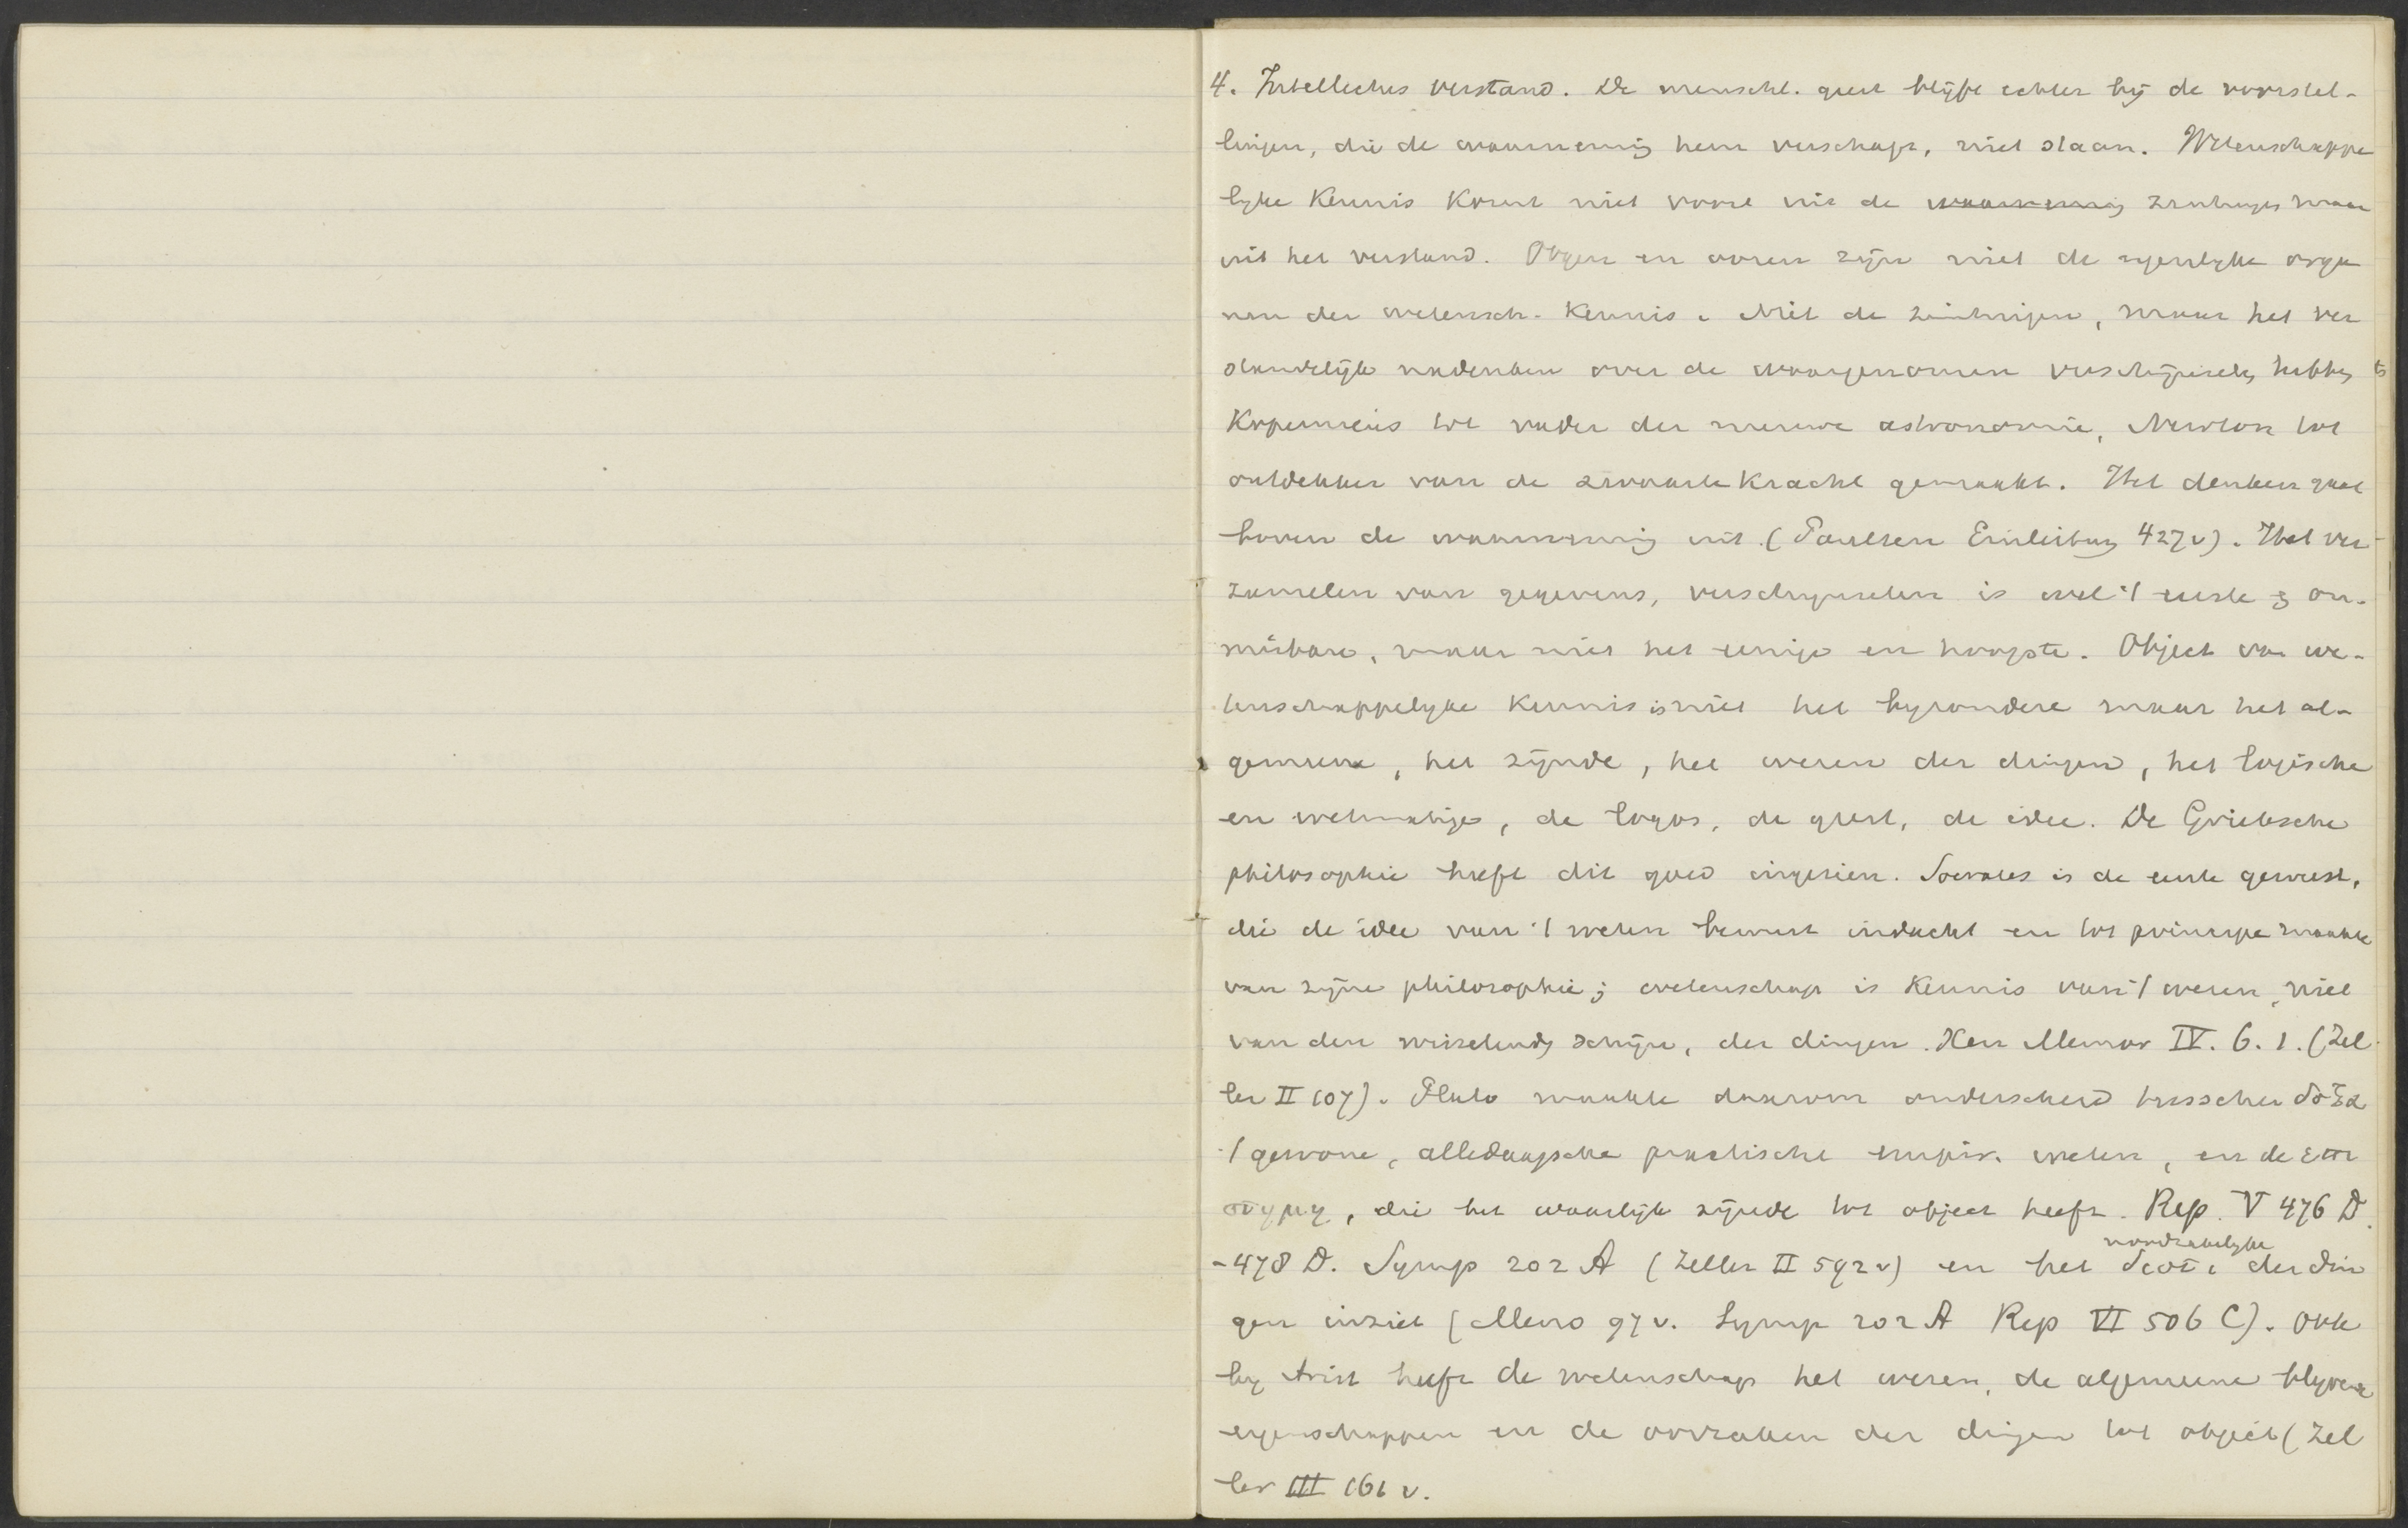 4. Intellectus verstand. De menschl. geest blijft echter bij de voorstel-
lingen, die de waarneming hem verschaft, niet staan. Wetenschappe
lyke Kennis komt niet voort uit de waarneming zintuigen maar
uit het verstand. Oogen en ooren zijn niet de eigenlyke orga
nen der wetensch. Kennis. Niet de zintuigen, maar het ver
standelijk nadenken over de waargenomen verschijnselen hebben
Kopernicus tot vader der nieuwe astronomie, Newton tot
ontdekker van de zwaartekracht gemaakt. Het denken gaat
boven de waarneming uit. (Paulsen Einleitung 427v). Het ver-
zamelen van gegevens, verschynselen is wel 't eerste & on-
misbare, maar niet het eenige en hoogste. Object van we-
tenschappelyke Kennis is niet het byzondere maar het al-
gemeene, het zijnde, het wezen der dingen, het logische
en wetmatige, de logos, de geest, de idee. De Grieksche
philosophie heeft dit goed ingezien. Socrates is de eerste geweest,
die de idee van 't weten bewust indacht en tot principe maakte
van zijne philosophie; wetenschap is Kennis van 't wezen, niet
van den wisselenden schijn, der dingen. Xen Memor IV. 6. 1. (Zel
ler II 107). Plato maakte daarom onderscheid tusschen δόξα
't gewone, alledaagsche practische empir. weten, en de επι
στημη, die het waarlijk zijnde tot object heeft. Rep. V 476 D.
-478 D. Symp 202 A (Zeller II 592v) en het noodzakelyke διοτι der din
gen inziet (Meno 97v. Symp 202 A Rep VI 506 C). Ook
by Arist heeft de wetenschap het wezen, de algemeene blyvende
eigenschappen en de oorzaken der dingen tot object (Zel
ler III 161 v.